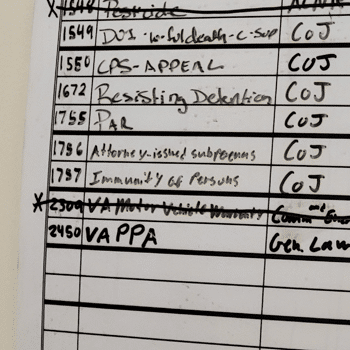 x 1548 Pesticide
1549 DUI-w-ful death-c-sup CoJ
1550 CPS-APPEAL CoJ
1672 Resisting Detention CoJ
1755 PAR CoJ
1756 Attorney-issued subpoenas CoJ
1757 Immunity of Persons CoJ
x 2309 VA Motor Vehicle Warranty
2450 VAPPA Gen. Law